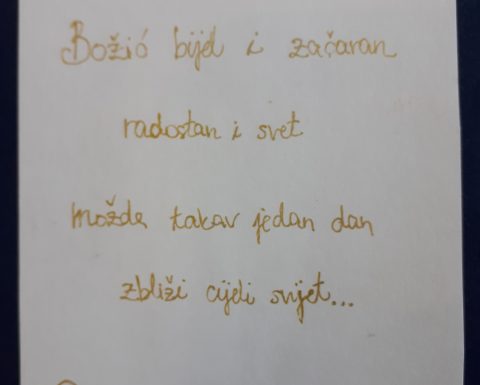 Božić bijel i začaran
radostan i svet
možda takav jedan dan
zbliži cijeli svijet...